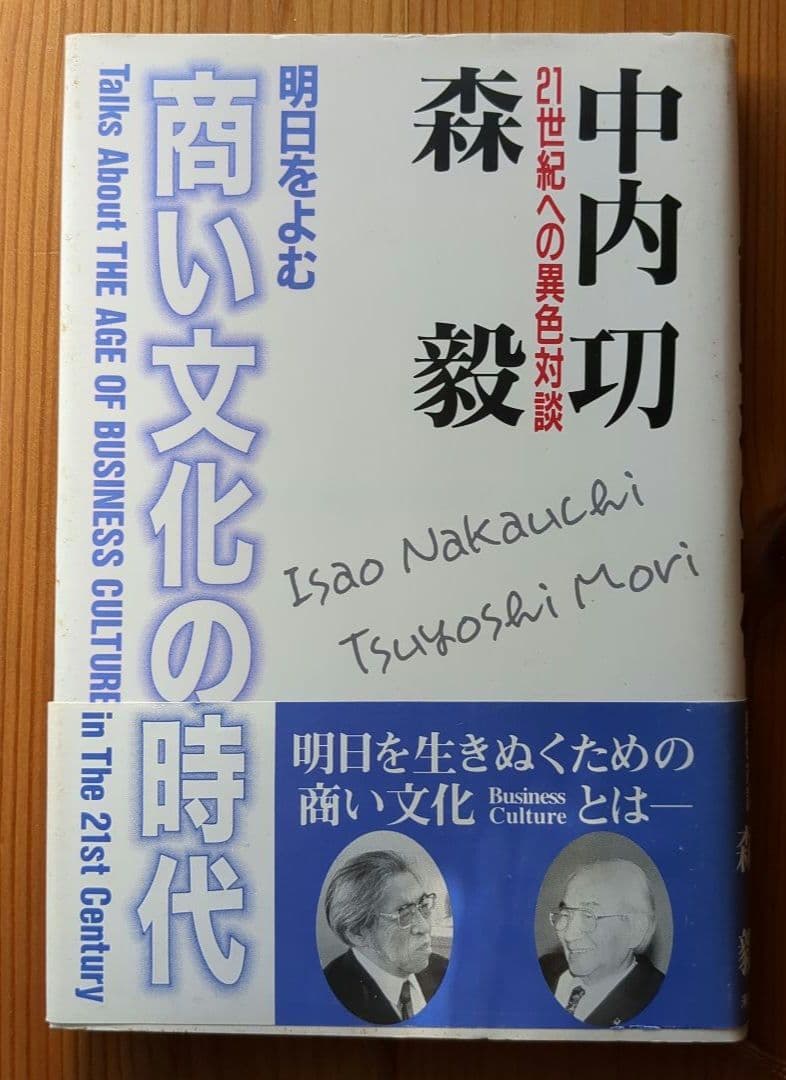 中内㓛
21世紀への異色対談
森毅
明日をよむ
商い文化の時代
Talks About THE AGE OF BUSINESS CULTURE in The 21st Century
Isao Nakauchi
Tsuyoshi Mori
明日を生きぬくための
商い文化 Business Culture とは—
森毅